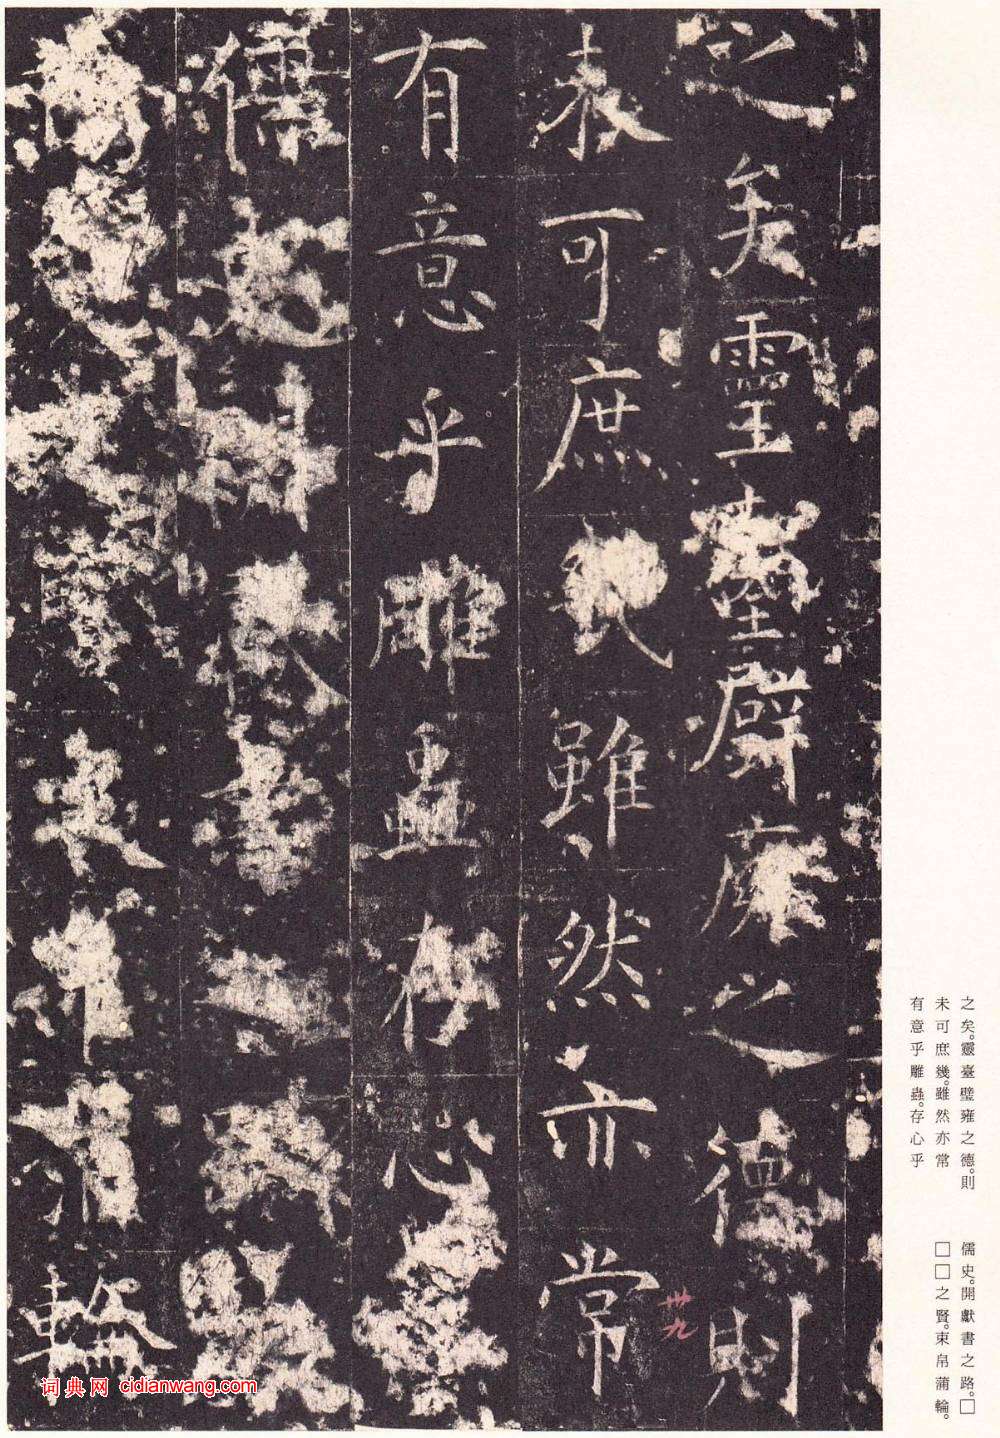 之矣靈臺璧廱之德則
未可庶幾雖然亦常
有意乎雕蟲存心乎
儒史開獻書之路
之賢束帛蒲輪
卅九
之矣。靈臺璧雍之德。則
未可庶幾。雖然亦常
有意乎雕蟲。存心乎
儒史。開獻書之路。□
□□之賢。束帛蒲輪。
词典网 cidianwang.com